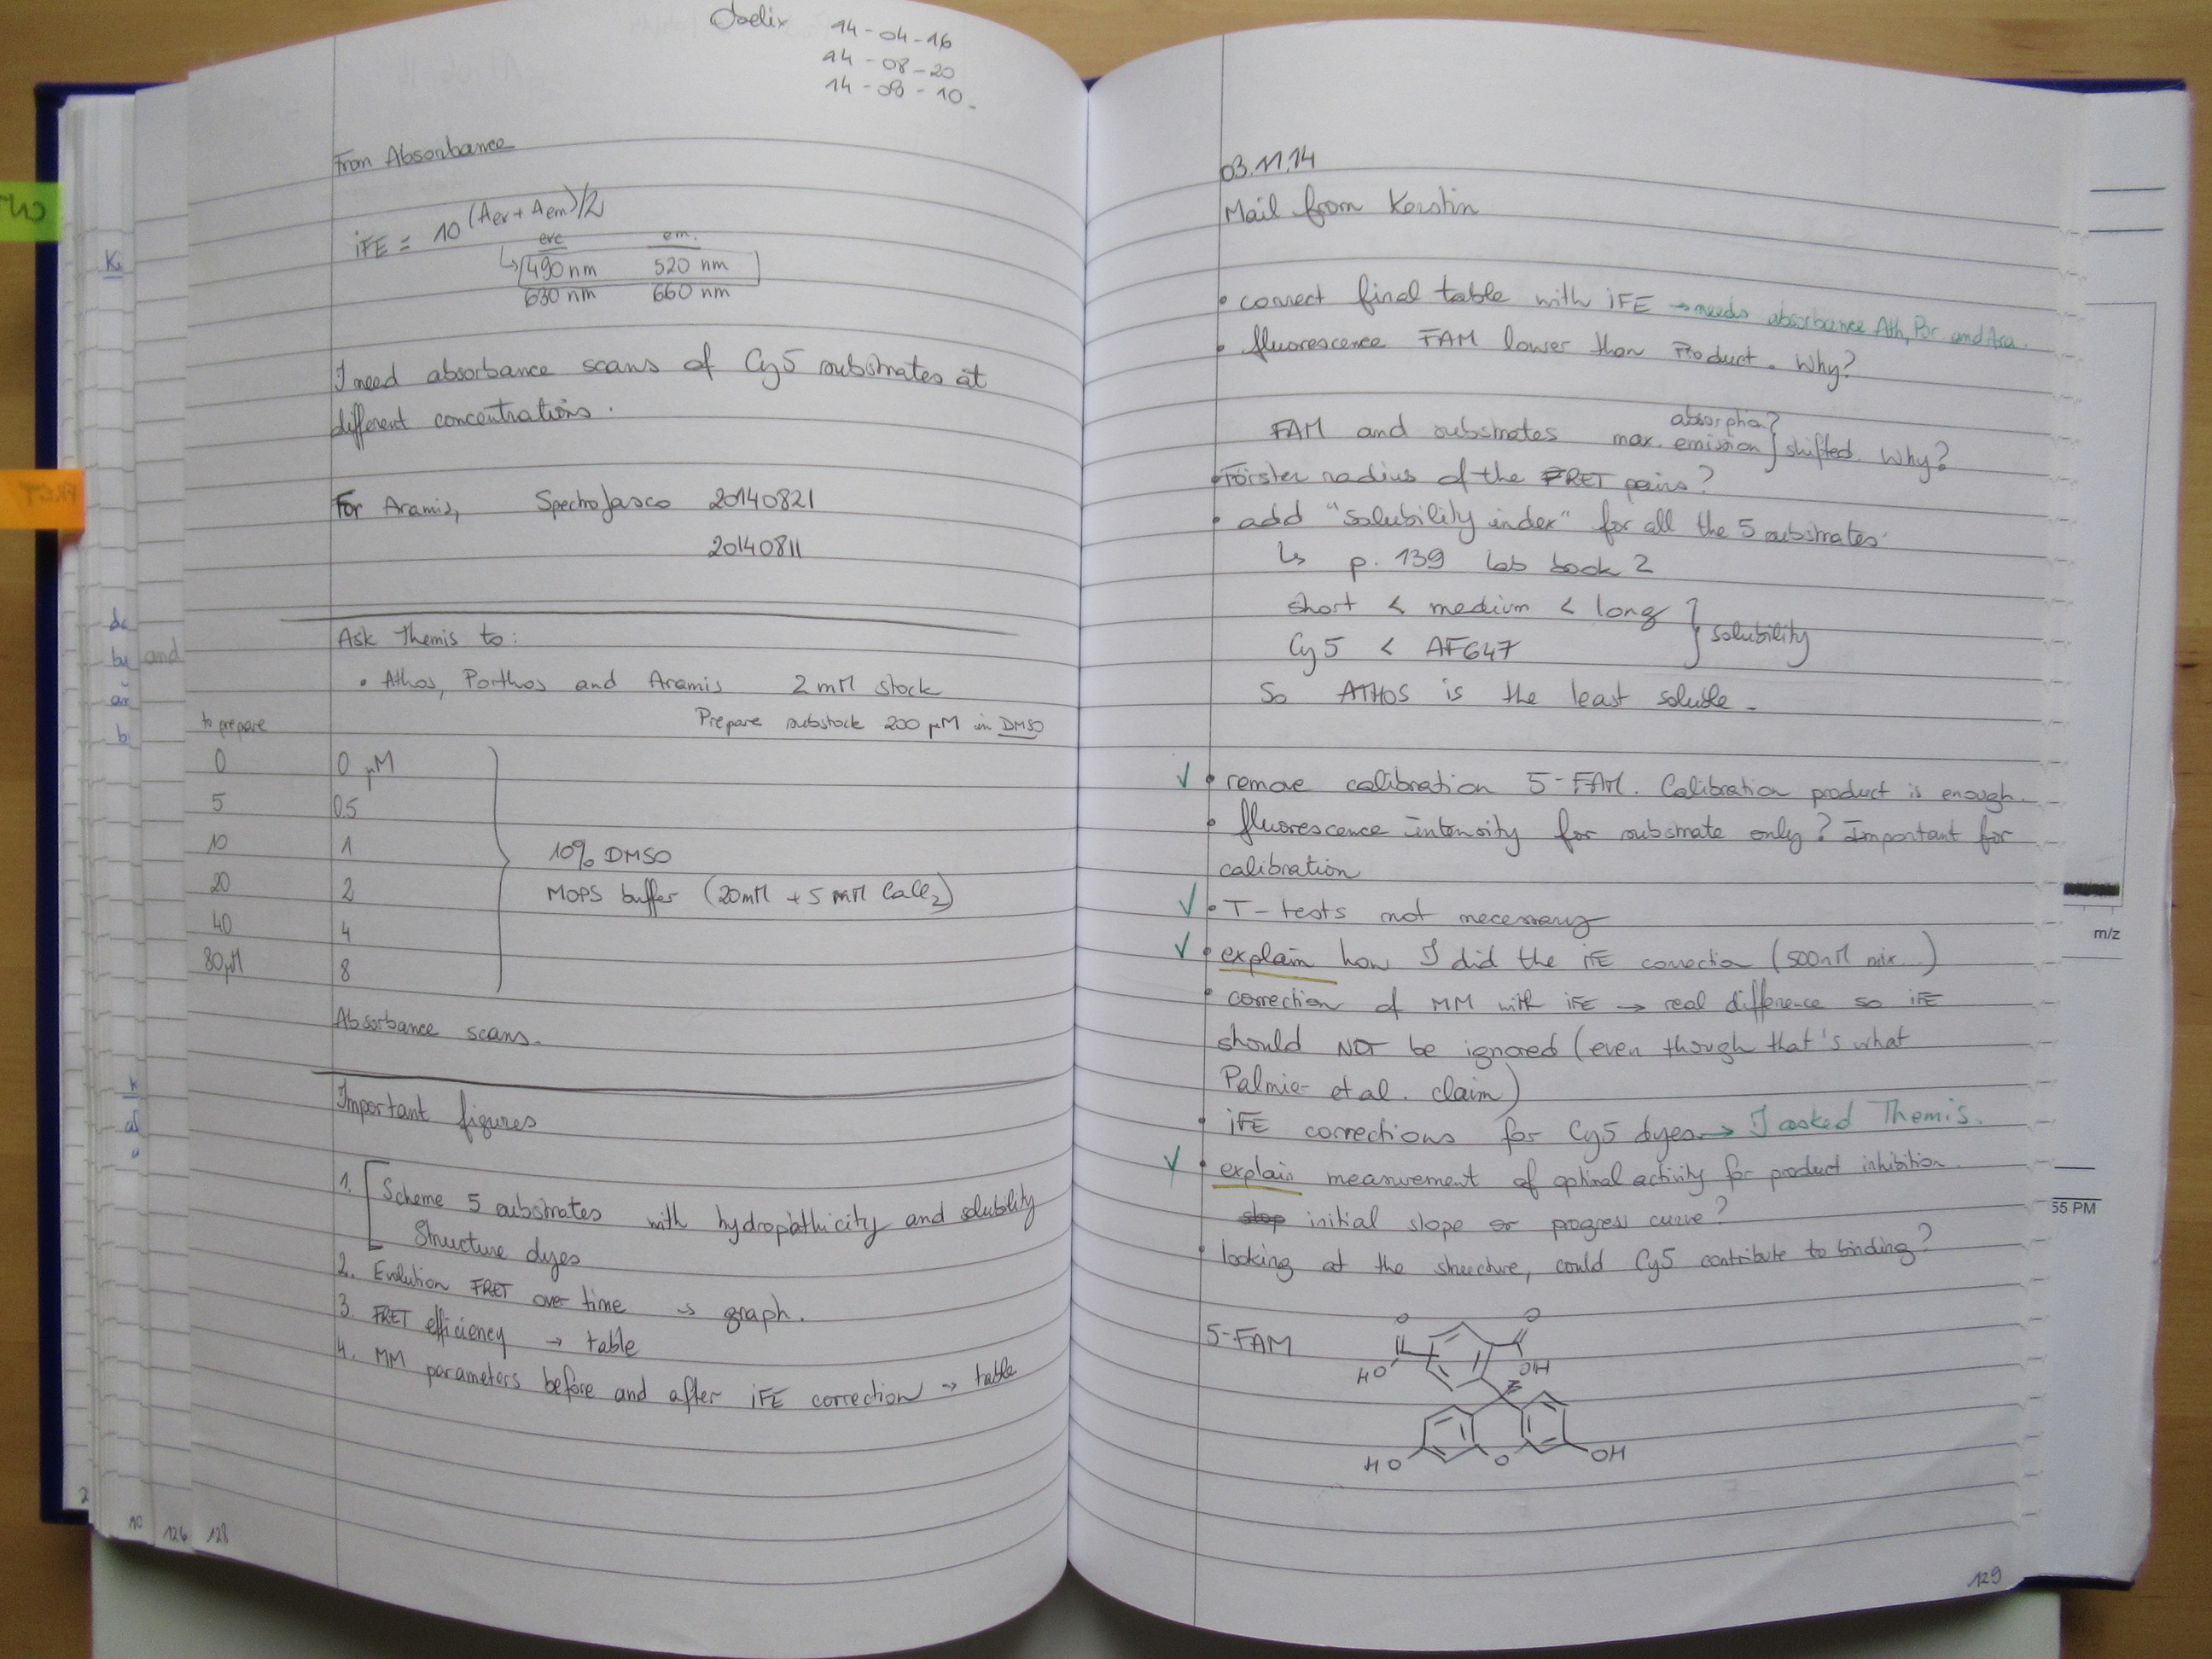 Obelix 14-04-16
14-08-20
14-08-10
From Absorbance
iFE = 10^(Aex + Aem)/2
exc em.
490 nm 520 nm
630 nm 660 nm
I need absorbance scans of Cy5 substrates at
different concentrations.
For Aramis, Spectro Jasco 20140821
20140811
Ask Themis to:
• Athos, Porthos and Aramis 2 mM stock
to prepare Prepare substock 200 µM in DMSO
0 0 µM
5 0.5
10 1
20 2
40 4
80 µM 8
10% DMSO
MOPS buffer (20 mM + 5 mM CaCl2)
Absorbance scans.
Important figures
1. Scheme 5 substrates with hydropathicity and solubility
Structure dyes
2. Evolution FRET over time → graph.
3. FRET efficiency → table
4. MM parameters before and after iFE correction → table
126 128
03.11.14
Mail from Kerstin
• correct final table with iFE → needs absorbance Ath, Por and Ara.
• fluorescence FAM lower than Product. Why?
FAM and substrates max. emission } shifted. Why?
• Förster radius of the FRET pairs?
• add "solubility index" for all the 5 substrates
↳ p. 139 lab book 2
short < medium < long
Cy5 < AF647 } solubility
So ATHOS is the least soluble.
✓ • remove calibration 5-FAM. Calibration product is enough.
• fluorescence intensity for substrate only? Important for
calibration
✓ • T-tests not necessary
✓ • explain how I did the iFE correction (500nM mix...)
• correction of MM with iFE → real difference so iFE
should NOT be ignored (even though that's what
Palmier et al. claim)
• iFE corrections for Cy5 dyes → I asked Themis.
✓ • explain measurement of optimal activity for product inhibition
initial slope or progress curve?
• looking at the structure, could Cy5 contribute to binding?
5-FAM
O O
HO OH
HO O OH
129
m/z
55 PM